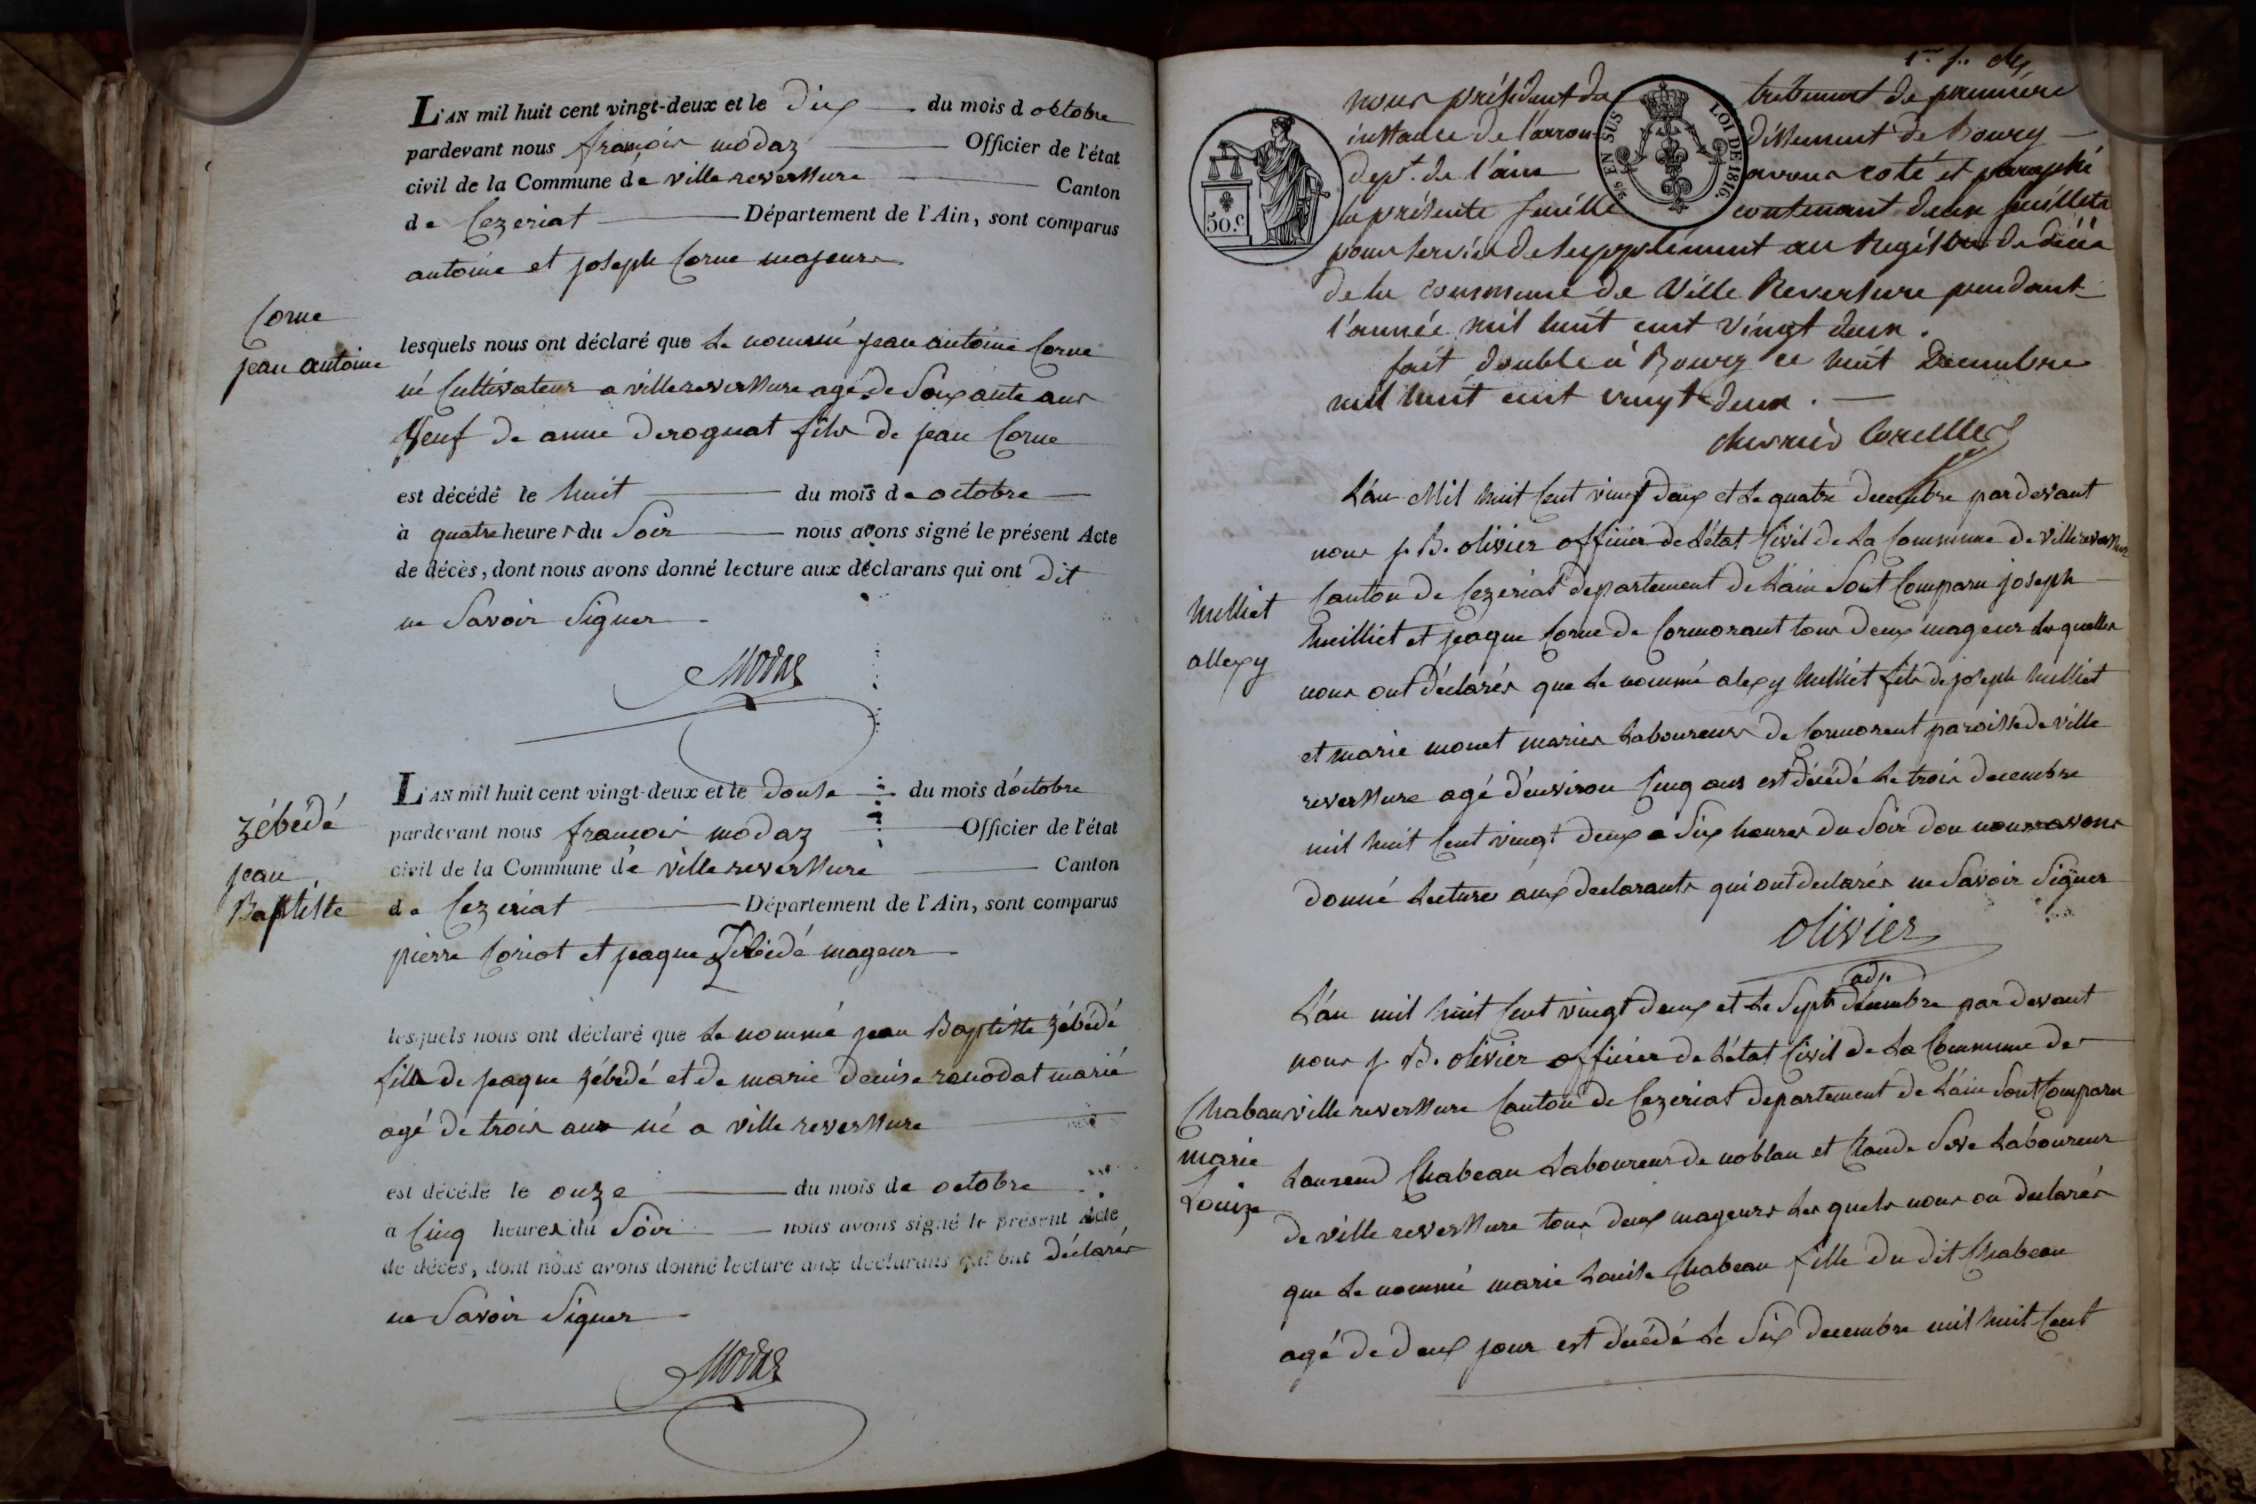 L'AN mil huit cent vingt-deux et le dix du mois d octobre
pardevant nous françois modaz Officier de l'état
civil de la Commune de villereversure Canton
de Cezeriat Département de l'Ain, sont comparus
antoine et joseph Corne majeurs
Corne
jean antoine
lesquels nous ont déclaré que Le nommé jean antoine Corne
né Cultivateur a villereversure agé de Soixante ans
Veuf de anne deroguat fils de jean Corne
est décédé le huit du mois de octobre
à quatre heures du Soir nous avons signé le présent Acte
de décès, dont nous avons donné lecture aux déclarans qui ont dit
ne Savoir Signer
Modaz
L'AN mil huit cent vingt-deux et le douse du mois d'octobre
zébédé
jean
Baptiste
pardevant nous françois modaz Officier de l'état
civil de la Commune de ville reversure Canton
de Cezeriat Département de l'Ain, sont comparus
pierre Coriot et jaque Zébédé mageur
lesquels nous ont déclaré que Le nommé jean Baptiste zébédé
fils de jaque zébédé et de marie denise ravodat marié
agé de trois ans né a ville reversure
est décédé le onze du mois de octobre
à Cinq heures du Soir nous avons signé le présent Acte
de décès, dont nous avons donné lecture aux déclarans qui ont déclarés
ne Savoir Signer
Modaz
50.c
EN SUS LOI DE 1816
nous président du tribunal de première
instance de l'arrondissement de Bourg
dept. de l'ain avons coté et paraphé
la présente feuille contenant deux feuillets
pour servir de supplement au Registre de décès
de la commune de Ville Reversure pendant
l'année mil huit cent vingt deux.
fait double à Bourg ce huit Decembre
mil huit cent vingt deux.
L'an Mil huit Cent vingt deux et Le quatre decembre pardevant
nous j. B. olivier officier de L'état Civil de La Commune de villereversure
Canton de Cezeriat departement de L'ain Sont Comparu joseph
Milliet
allexy
Meilliet et jaque Corne de Cormorant tous deux mageur Les quelles
nous ont déclarés que Le nommé alexy Milliet fils de joseph Milliet
et marie monet mariés Laboureurs de Cormorent paroisse de ville
reversure agé d'environ Cinq ans est décédé Le trois decembre
mil huit Cent vingt deux a Six heures du Soir dou nous avons
donné Lectures aux declarants qui ont declarés ne Savoir Signer
olivier
adj.
L'an mil huit Cent vingt deux et Le Sept decembre par devant
nous j. B. olivier officier de L'état Civil de La Commune de
Chabeau
marie
Louize
ville reversure Canton de Cezeriat departement de L'ain Sont Comparu
Laurend Chabeau Laboureur de noblan et Claude Seve Laboureur
de ville reversure tous deux mageurs Les quels nous on declarés
que Le nommé marie Louise Chabeau fille du dit Chabeau
agé de deux jour est décédé Le Six decembre mil huit Cent